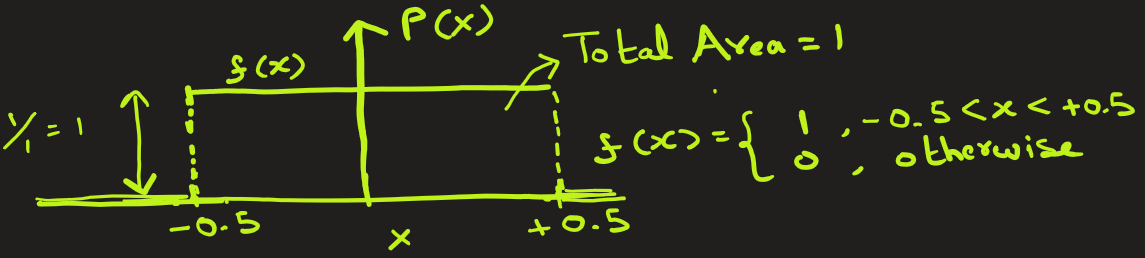 P(x)
Total Area = 1
f(x)
1/1 = 1
f(x) = { 1 , -0.5 < x < +0.5
0 , otherwise
-0.5
x
+0.5